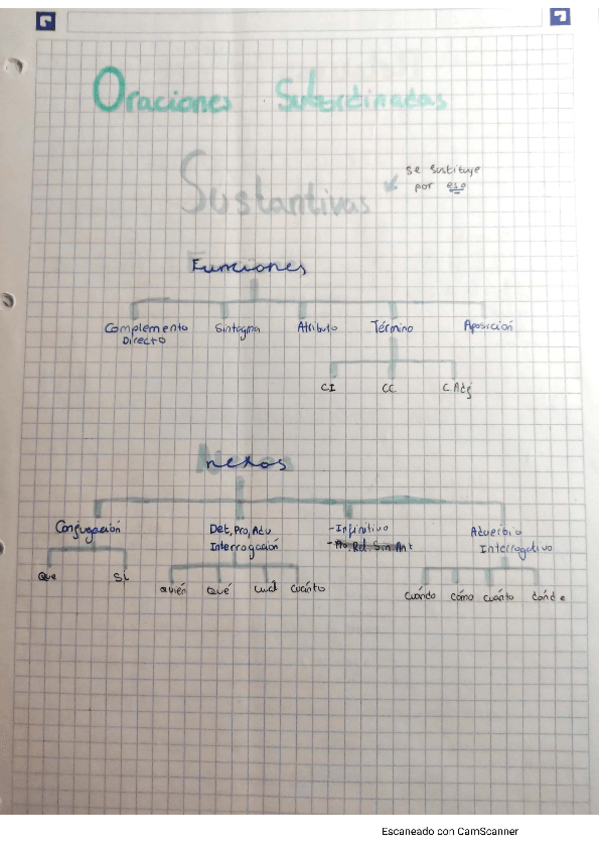 Oraciones Subordinadas
Sustantivas
se sustituye
por eso
Funciones
Complemento
Directo
Sintagma
Atributo
Término
Aposición
CI
CC
C.Adj
Nexos
Conjugación
Det, Pro, Adv
Interrogación
-Infinitivo
-Pro. Rel. Sin Ant
Adverbio
Interrogativo
Que
Sí
quién
Qué
cuál
cuánto
cuándo
cómo
cuánto
dónde
Escaneado con CamScanner